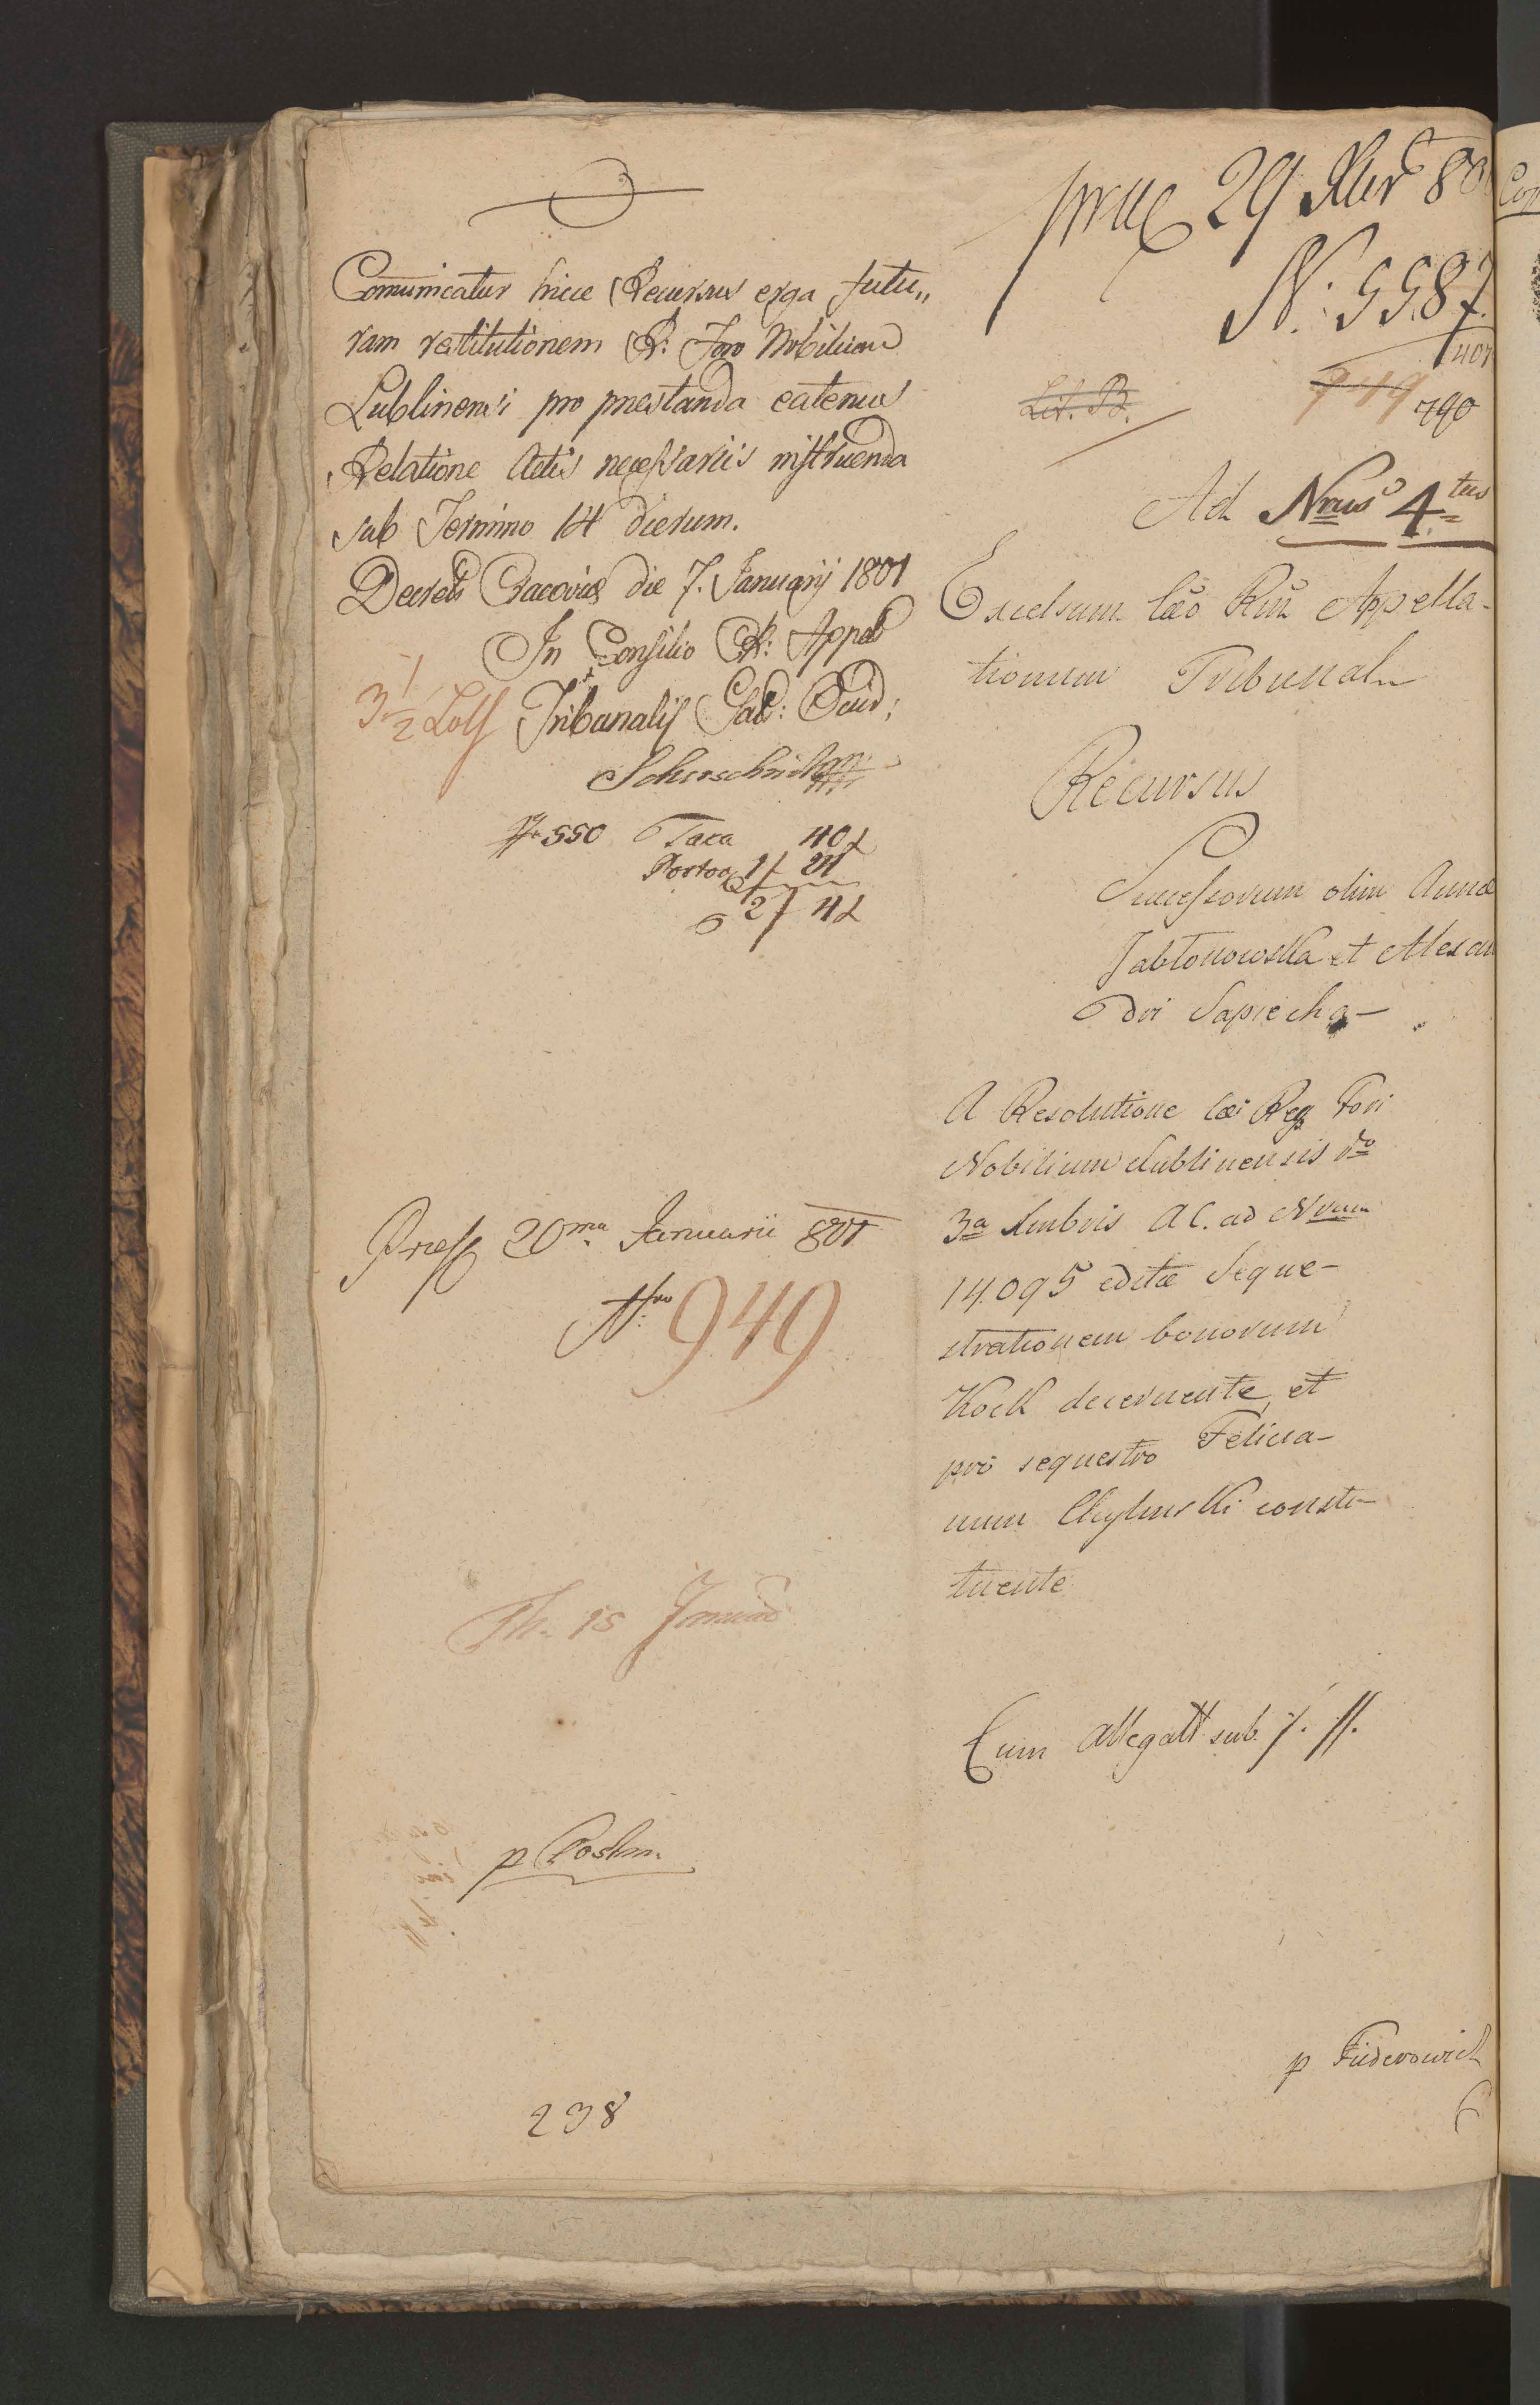 Comunicatur hicce Recursus erga futu„
ram restitutionem R: Foro Nobilium
Lublinensi pro præstanda eatenus
Relatione Actis necessariis instruenda
sub Termino 14 dierum.
Decretũ Cracoviæ die 7. Januarij 1801
In Consilio R: Appel
Tribunalis Gal: Occid:
3 1/2 Loth
№ 550 Taxa 40 x
Porto 1 f 24
2 f 4 x
Præs 20ma Januarii 801
Nro 949
Th. 15 Januar
p Postm.
238
præs 29 Xbr 80
N: 5587
401
Lit. B.
949 790
Ad Nrus 4tus
Excelsum Cæo Rum Appella-
tionum Tribunal
Recursus
Successorum olim Annæ
Jabłonowska et Alexan
dri Sapiecha
A Resolutione Cæo Reg Fori
Nobilium Lublinensis dto
3a Xmbris A C. ad Nrum
14.095 editæ Seque-
strationem bonorum
Kock decernente, et
pro sequestro Felicia-
num constu-
tuente
Cum Allegatt sub ·/· //.
p Füderowich